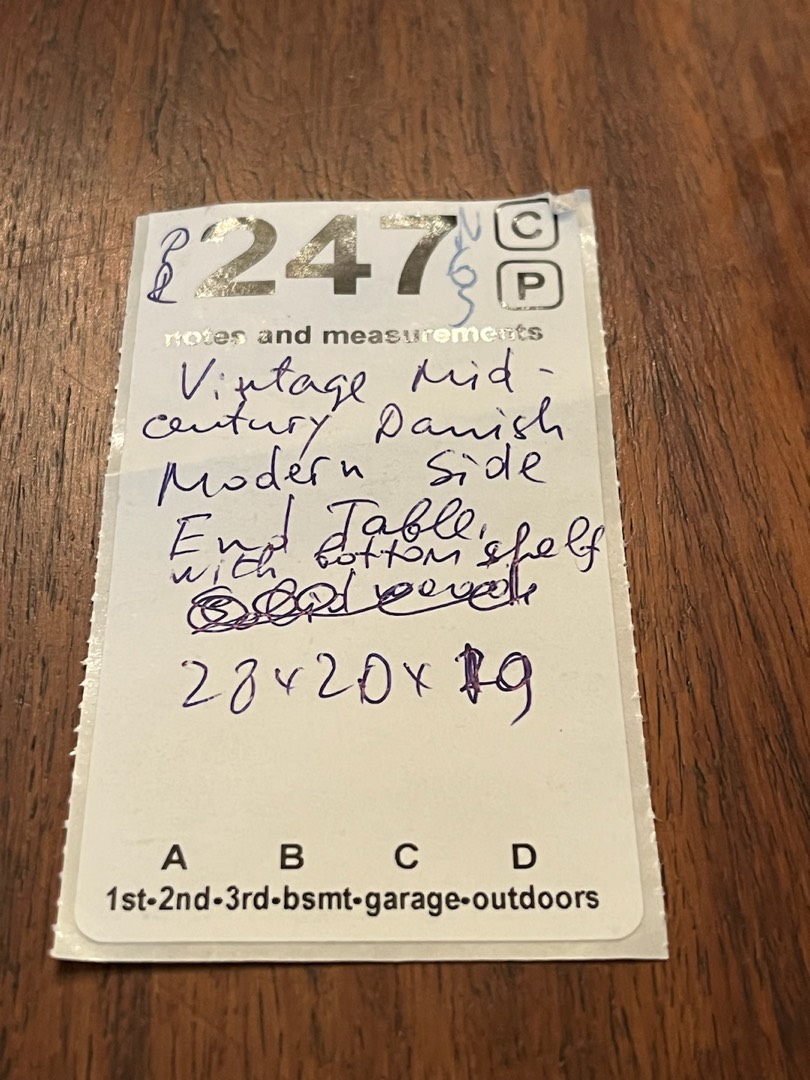 247 C
P
notes and measurements
Vintage Mid-
century Danish
Modern Side
End Table,
with bottom shelf
28 x 20 x 19
A B C D
1st-2nd-3rd-bsmt-garage-outdoors